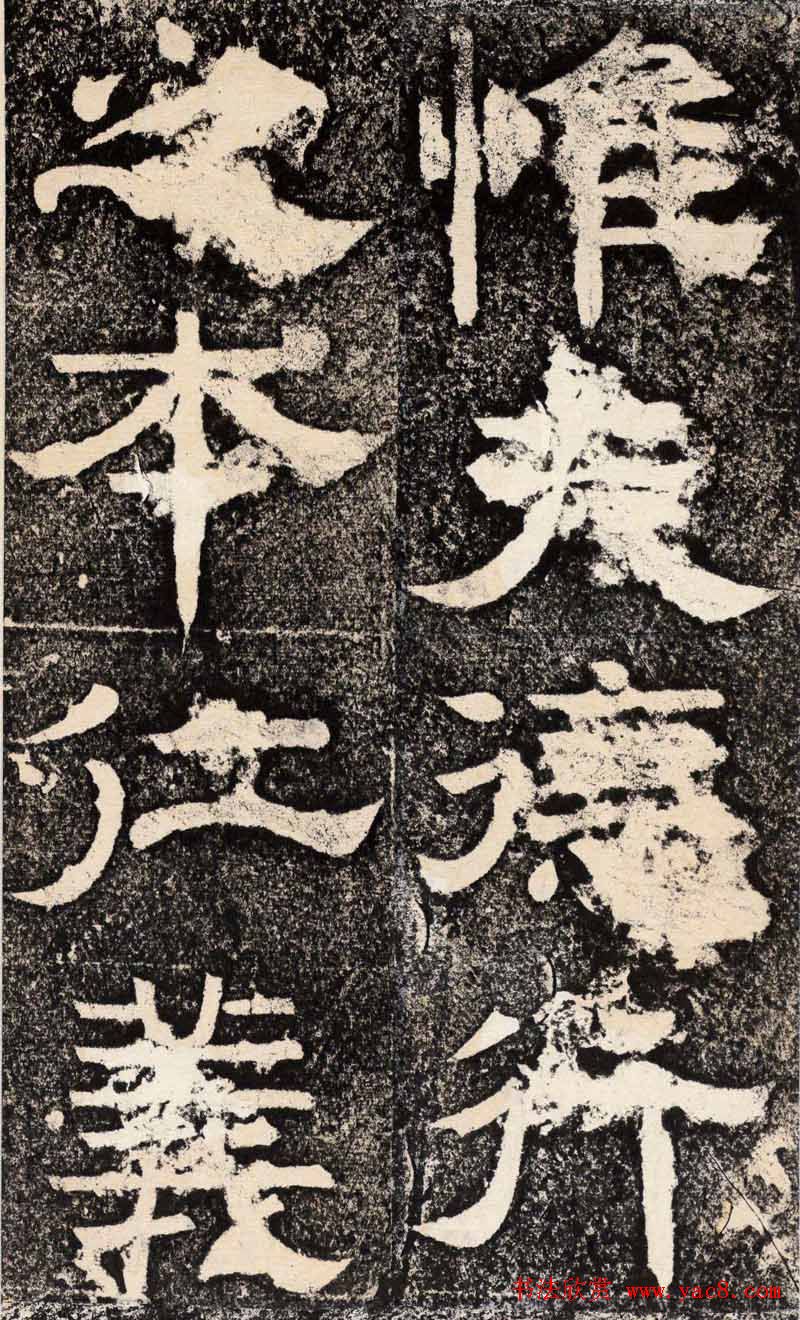 惟夫德行
之本仁義
书法欣赏 www.yac8.com